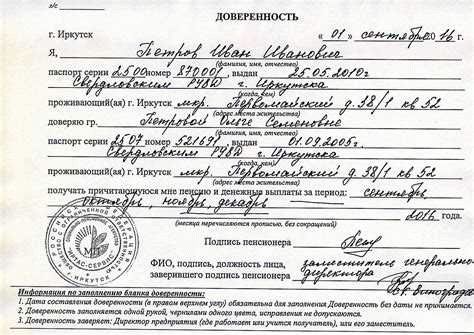 з/с
ДОВЕРЕННОСТЬ
г. Иркутск « 01 » сентября 2016 г.
Я, Петров Иван Иванович
(фамилия, имя, отчество)
паспорт серии 2500 номер 870001, выдан 25.05.2010г
Свердловским РУВД г. Иркутска
(когда, кем)
проживающий(ая) г. Иркутск мкр. Первомайский д. 38/1 кв 52
(адрес места жительства)
доверяю гр. Петровой Ольге Семеновне
(фамилия, имя, отчество)
паспорт серии 2507 номер 521691, выдан 01.09.2005г.
Свердловским РУВД г. Иркутска
(когда, кем)
проживающий(ая) г. Иркутск мкр. Первомайский д. 38/1 кв 52
(адрес места жительства)
получать причитающуюся мне пенсию и денежные выплаты за период: сентябрь,
октябрь, ноябрь, декабрь 2016 года.
(месяца перечисляются прописью, без сокращений)
Подпись пенсионера
ФИО, подпись, должность лица, заместитель генерального
заверившего подпись пенсионера директора
Информация по заполнению бланка доверенности:
1. Дата составления доверенности (в правом верхнем углу) обязательна для заполнения Доверенность без даты не принимается.
2. Доверенность заполняется одной рукой, чернилами одного цвета, исправления не допускаются.
3. Доверенность заверяет: Директор предприятия (где работает или учится получатель), или его заместитель.